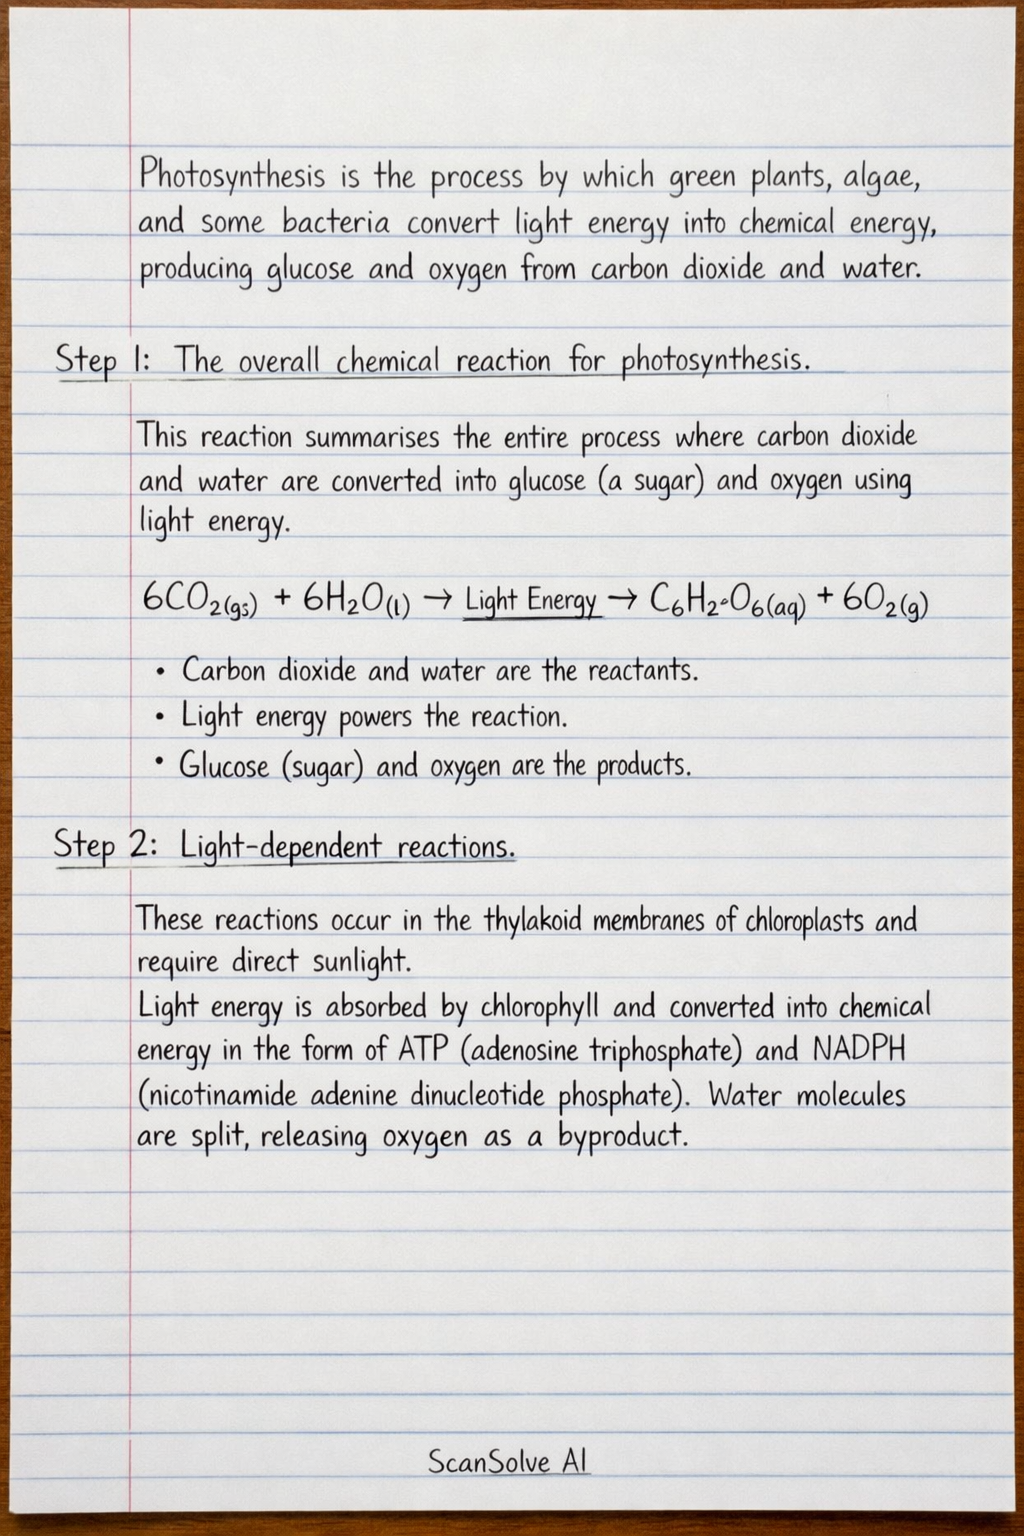 Photosynthesis is the process by which green plants, algae,
and some bacteria convert light energy into chemical energy,
producing glucose and oxygen from carbon dioxide and water.
Step 1: The overall chemical reaction for photosynthesis.
This reaction summarises the entire process where carbon dioxide
and water are converted into glucose (a sugar) and oxygen using
light energy.
6CO₂(gs) + 6H₂O(l) → Light Energy → C₆H₂∘O₆(aq) + 6O₂(g)
• Carbon dioxide and water are the reactants.
• Light energy powers the reaction.
• Glucose (sugar) and oxygen are the products.
Step 2: Light-dependent reactions.
These reactions occur in the thylakoid membranes of chloroplasts and
require direct sunlight.
Light energy is absorbed by chlorophyll and converted into chemical
energy in the form of ATP (adenosine triphosphate) and NADPH
(nicotinamide adenine dinucleotide phosphate). Water molecules
are split, releasing oxygen as a byproduct.
ScanSolve AI